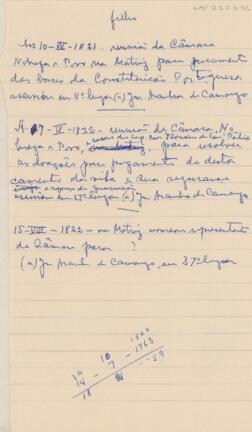 filho
Aos 10-VI-1821. reunião da Câmara
Nobreza e Povo na Matriz para juramento
das bases da Constituição Portuguesa
assinou em 11º lugar (a) Jm Aranha de Camargo
A 7-IV-1822 - reunião de Câmara, No
breza e Povo, para resolver
as doações para pagamento do desta
camento da vila e sua segurança
assinou em 17º lugar (a) Jm Aranha de Camargo
15-VIII-1822 - na Matriz nomear representante
da Câmara para ?
(a) Jm Aranh. de Camargo, em 37º lugar
10 1822
14 - 7 - 1763
18 59